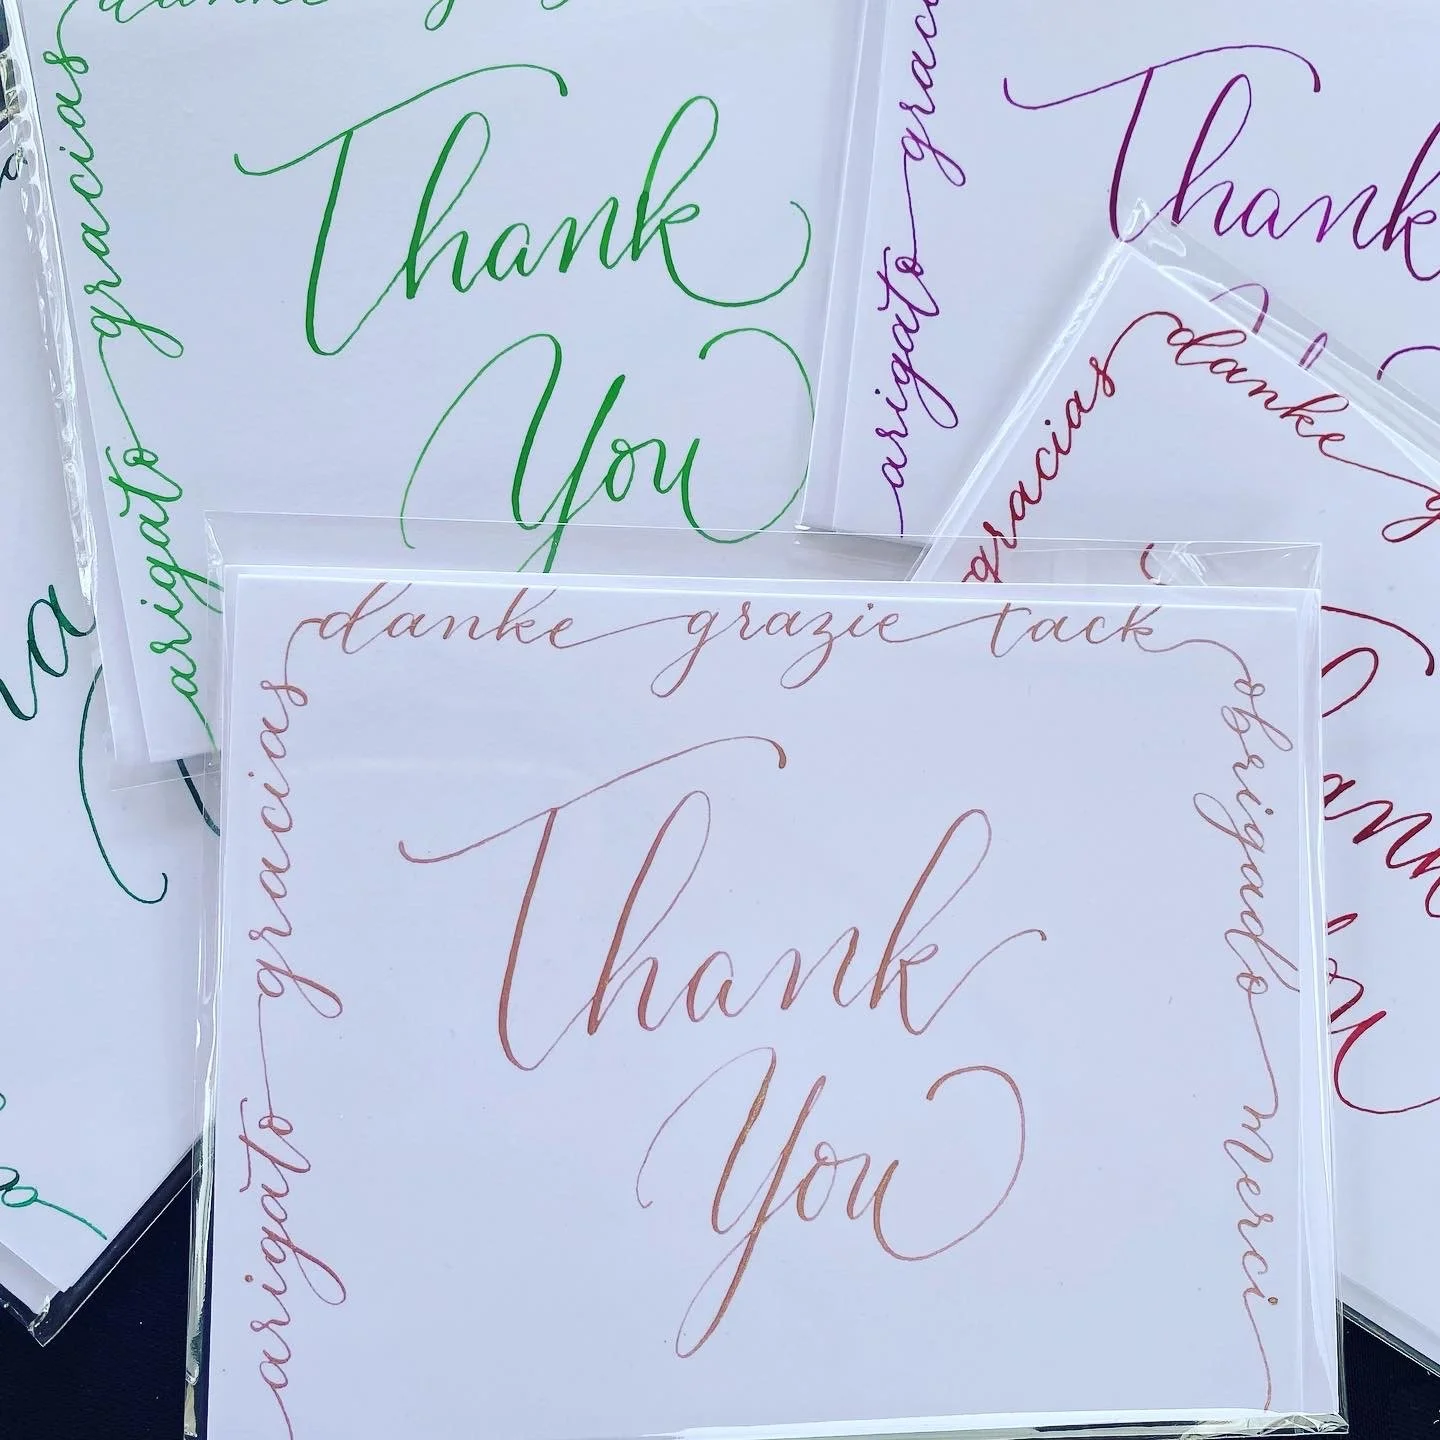 danke
gracias
arigato
Thank
You
gracias
arigato
Thank
danke
gracias
Thank
You
danke grazie tack
obrigado merci
arigato gracias
Thank
You